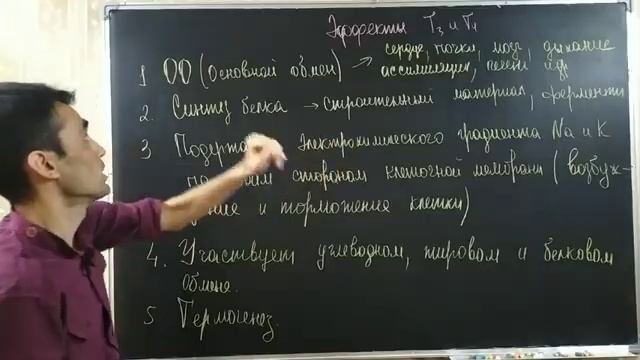 Эффекты Т3 и Т4
1 ОО (Основной обмен) → сердце, почки, мозг, дыхание
ассимиляция, печени и др
2. Синтез белка → строительный материал, ферменты
3 электрохимического градиента Na и K
сторонам клеточной мембраны (возбуж-
дение и торможение клетки)
4. Участвует углеводном, жировом и белковом
обмене.
5 Термогенез.